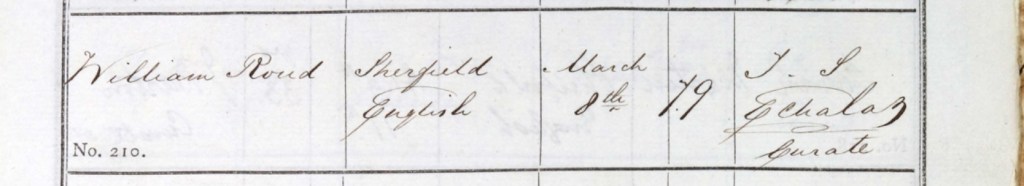 William Roud Sherfield March 79 T. S
English 8th Echalaz
No. 210. Curate